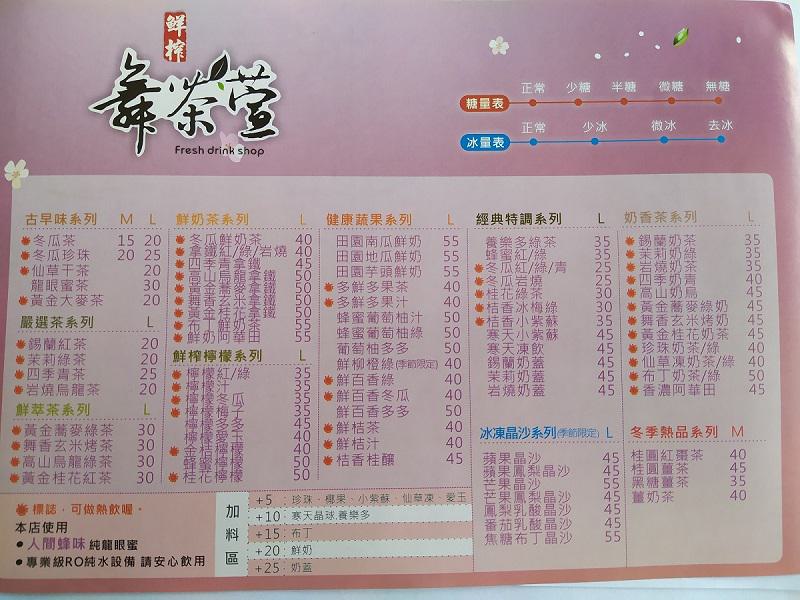 鮮榨
舞茶萱
Fresh drink shop
正常 少糖 半糖 微糖 無糖
糖量表
正常 少冰 微冰 去冰
冰量表
古早味系列 M L
冬瓜茶 15 20
冬瓜珍珠 20 25
仙草干茶 20
龍眼蜜茶 30
黃金大麥茶 20
嚴選茶系列 L
錫蘭紅茶 20
茉莉綠茶 20
四季青茶 25
岩燒烏龍茶 20
鮮萃茶系列 L
黃金蕎麥綠茶 30
舞香玄米烤茶 30
高山烏龍綠茶 30
黃金桂花紅茶 30
鮮奶茶系列 L
冬瓜鮮奶茶 40
拿鐵紅/綠/岩燒 40
四季青拿鐵 45
高山烏龍拿鐵 50
黃金蕎麥拿鐵 50
舞香玄米拿鐵 50
黃金桂花拿鐵 50
布丁鮮奶茶 55
鮮奶阿華田 55
鮮榨檸檬系列 L
檸檬紅/綠 35
檸檬汁 35
檸檬冬瓜 35
檸檬梅子
檸檬多多
檸檬愛玉
金桔檸檬
蜂蜜檸檬
桂花檸檬 50
健康蔬果系列 L
田園南瓜鮮奶 55
田園地瓜鮮奶 55
田園芋頭鮮奶 55
多鮮多果茶 40
多鮮多果汁 40
蜂蜜葡萄柚汁 55
蜂蜜葡萄柚綠 55
葡萄柚多多 50
鮮柳橙綠(季節限定) 40
鮮百香綠 40
鮮百香冬瓜 40
鮮百香多多 50
鮮桔茶 40
鮮桔汁 40
桔香桂釀 45
經典特調系列 L
養樂多綠茶 35
蜂蜜紅/綠 35
冬瓜紅/綠/青 25
桂花綠茶 30
桔香冰梅綠 30
桔香小紫蘇 35
寒天小紫蘇 45
寒天凍飲 45
錫蘭奶蓋 45
茉莉奶蓋 45
岩燒奶蓋 45
冰凍晶沙系列(季節限定) L
蘋果晶沙 45
蘋果鳳梨晶沙 45
芒果晶沙 55
芒果鳳梨晶沙
鳳梨乳酸晶沙 45
番茄乳酸晶沙 45
焦糖布丁晶沙 55
奶香茶系列 L
錫蘭奶茶 35
茉莉奶綠 35
岩燒奶茶 35
四季奶青 40
高山奶烏 45
黃金蕎麥綠奶 45
舞香玄米烤奶 45
黃金桂花奶茶 45
珍珠奶茶/綠 40
仙草凍奶茶/綠 40
布丁奶茶/綠 50
香濃阿華田 45
冬季熱品系列 M
桂圓紅棗茶 40
桂圓薑茶 45
黑糖薑茶 35
薑奶茶 40
標誌，可做熱飲喔。
本店使用
●人間蜂味 純龍眼蜜
●專業級RO純水設備 請安心飲用
加料區
+5 珍珠、椰果、小紫蘇、仙草凍、愛玉
+10 寒天晶球.養樂多
+15 布丁
+20 鮮奶
+25 奶蓋